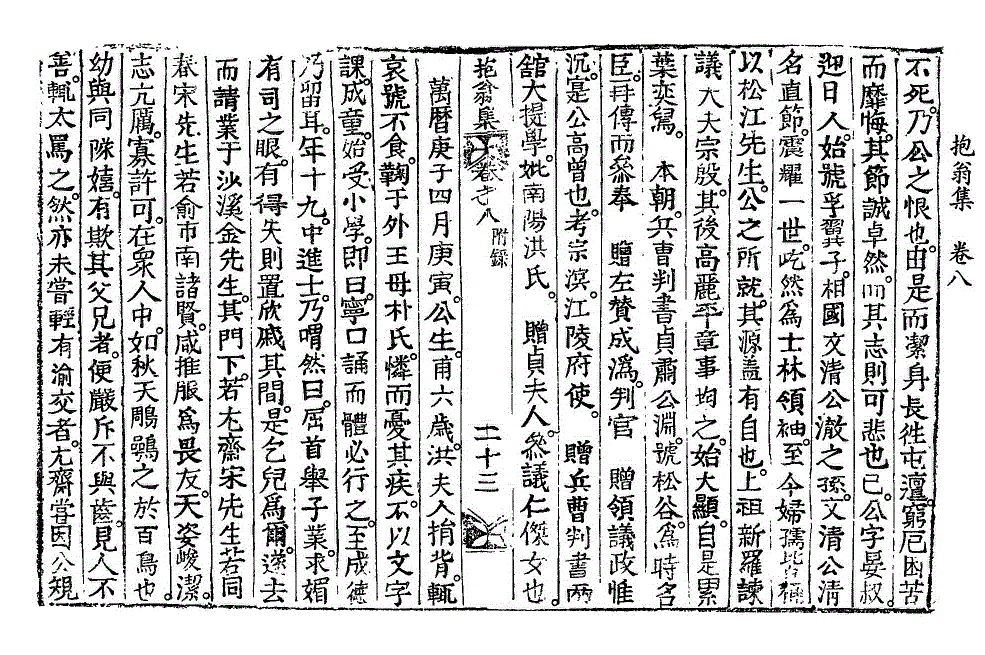 抱翁集　卷八
不死。乃公之恨也。由是而潔身長往。屯邅窮厄困苦
而靡悔。其節誠卓然。而其志則可悲也已。公字晏叔。
迎日人。始號孚翼子。相國文清公澈之孫。文清公清
名直節。震耀一世。屹然爲士林領袖。至今婦孺皆稱
以松江先生。公之所就。其源盖有自也。上祖新羅諫
議大夫宗殷。其後高麗平章事均之。始大顯。自是累
葉奕舃。　本朝。兵曹判書貞肅公淵。號松谷。爲時名
臣。再傳而叅奉　贈左贊成潙。判官　贈領議政惟
沉。寔公高曾也。考宗溟。江陵府使。　贈兵曹判書兩
館大提學。妣南陽洪氏。　贈貞夫人。叅議仁傑女也。
抱翁集　卷之八　附錄　二十三
萬曆庚子四月庚寅。公生。甫六歲。洪夫人捐背。輒
哀號不食。鞠于外王母朴氏。憐而憂其疾。不以文字
課。成童。始受小學。卽曰。寧口誦而體必行之。至成德
乃留耳。年十九。中進士。乃喟然曰。屈首擧子業。求媚
有司之眼。有得失則置欣戚其間。是乞兒爲爾。遂去
而請業于沙溪金先生。其門下。若尤齋宋先生若同
春宋先生若俞市南諸賢。咸推服爲畏友。天姿峻潔。
志亢厲。寡許可。在衆人中。如秋天鵰鶚之於百鳥也。
幼與同隊嬉。有欺其父兄者。便嚴斥不與齒。見人不
善。輒太罵之。然亦未嘗輕有渝交者。尤齋嘗因公規